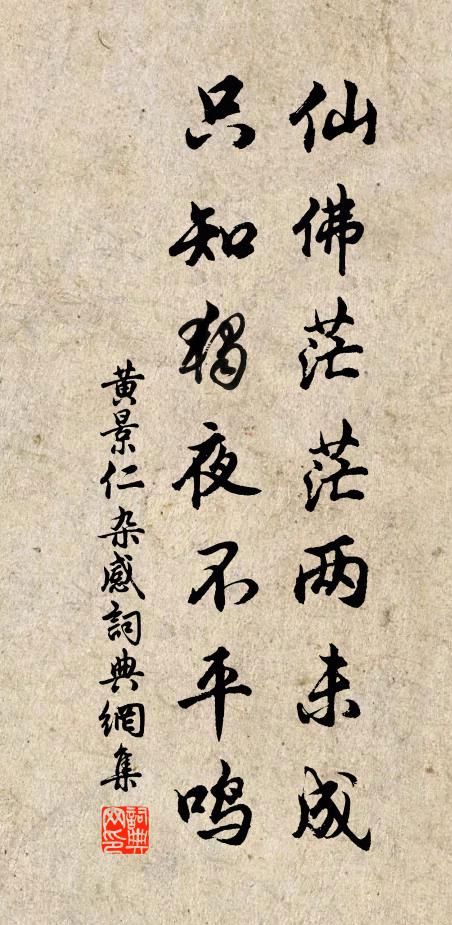 仙佛茫茫两未成
只知獨夜不平鳴
黄景仁杂感詞典網集
詞典网印